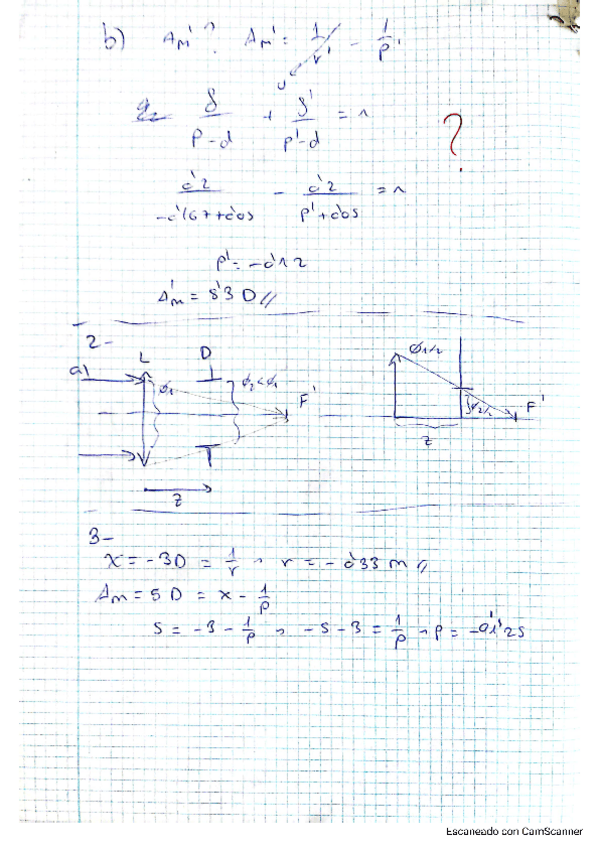 b) Am' ? Am' = 1/r' - 1/p'
δ/p-d + δ'/p'-d = 1
0'2/-0'167+0'05 - 0'2/p'+0'05 = 1
?
p' = -0'12
A'm = 8'3 D //
2-
a) L D
ϕ1 ϕ2<ϕ1 F'
z
ϕ1/2
ϕ2/2 F'
z
3-
x = -3D = 1/r → r = -0'33 m //
Am = 5 D = x - 1/p
5 = -3 - 1/p → -5-3 = 1/p → p = -0'125
Escaneado con CamScanner